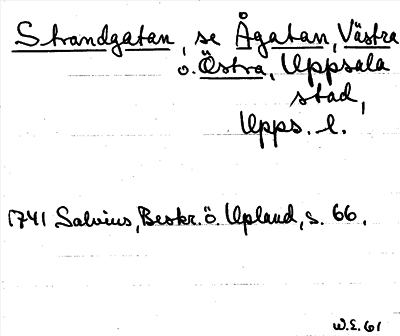 Strandgatan, se Ågatan, Västra
o. Östra, Uppsala
stad,
Upps. l.
1741 Salvius, Beskr. ö. Upland, s. 66.
W.E. 61